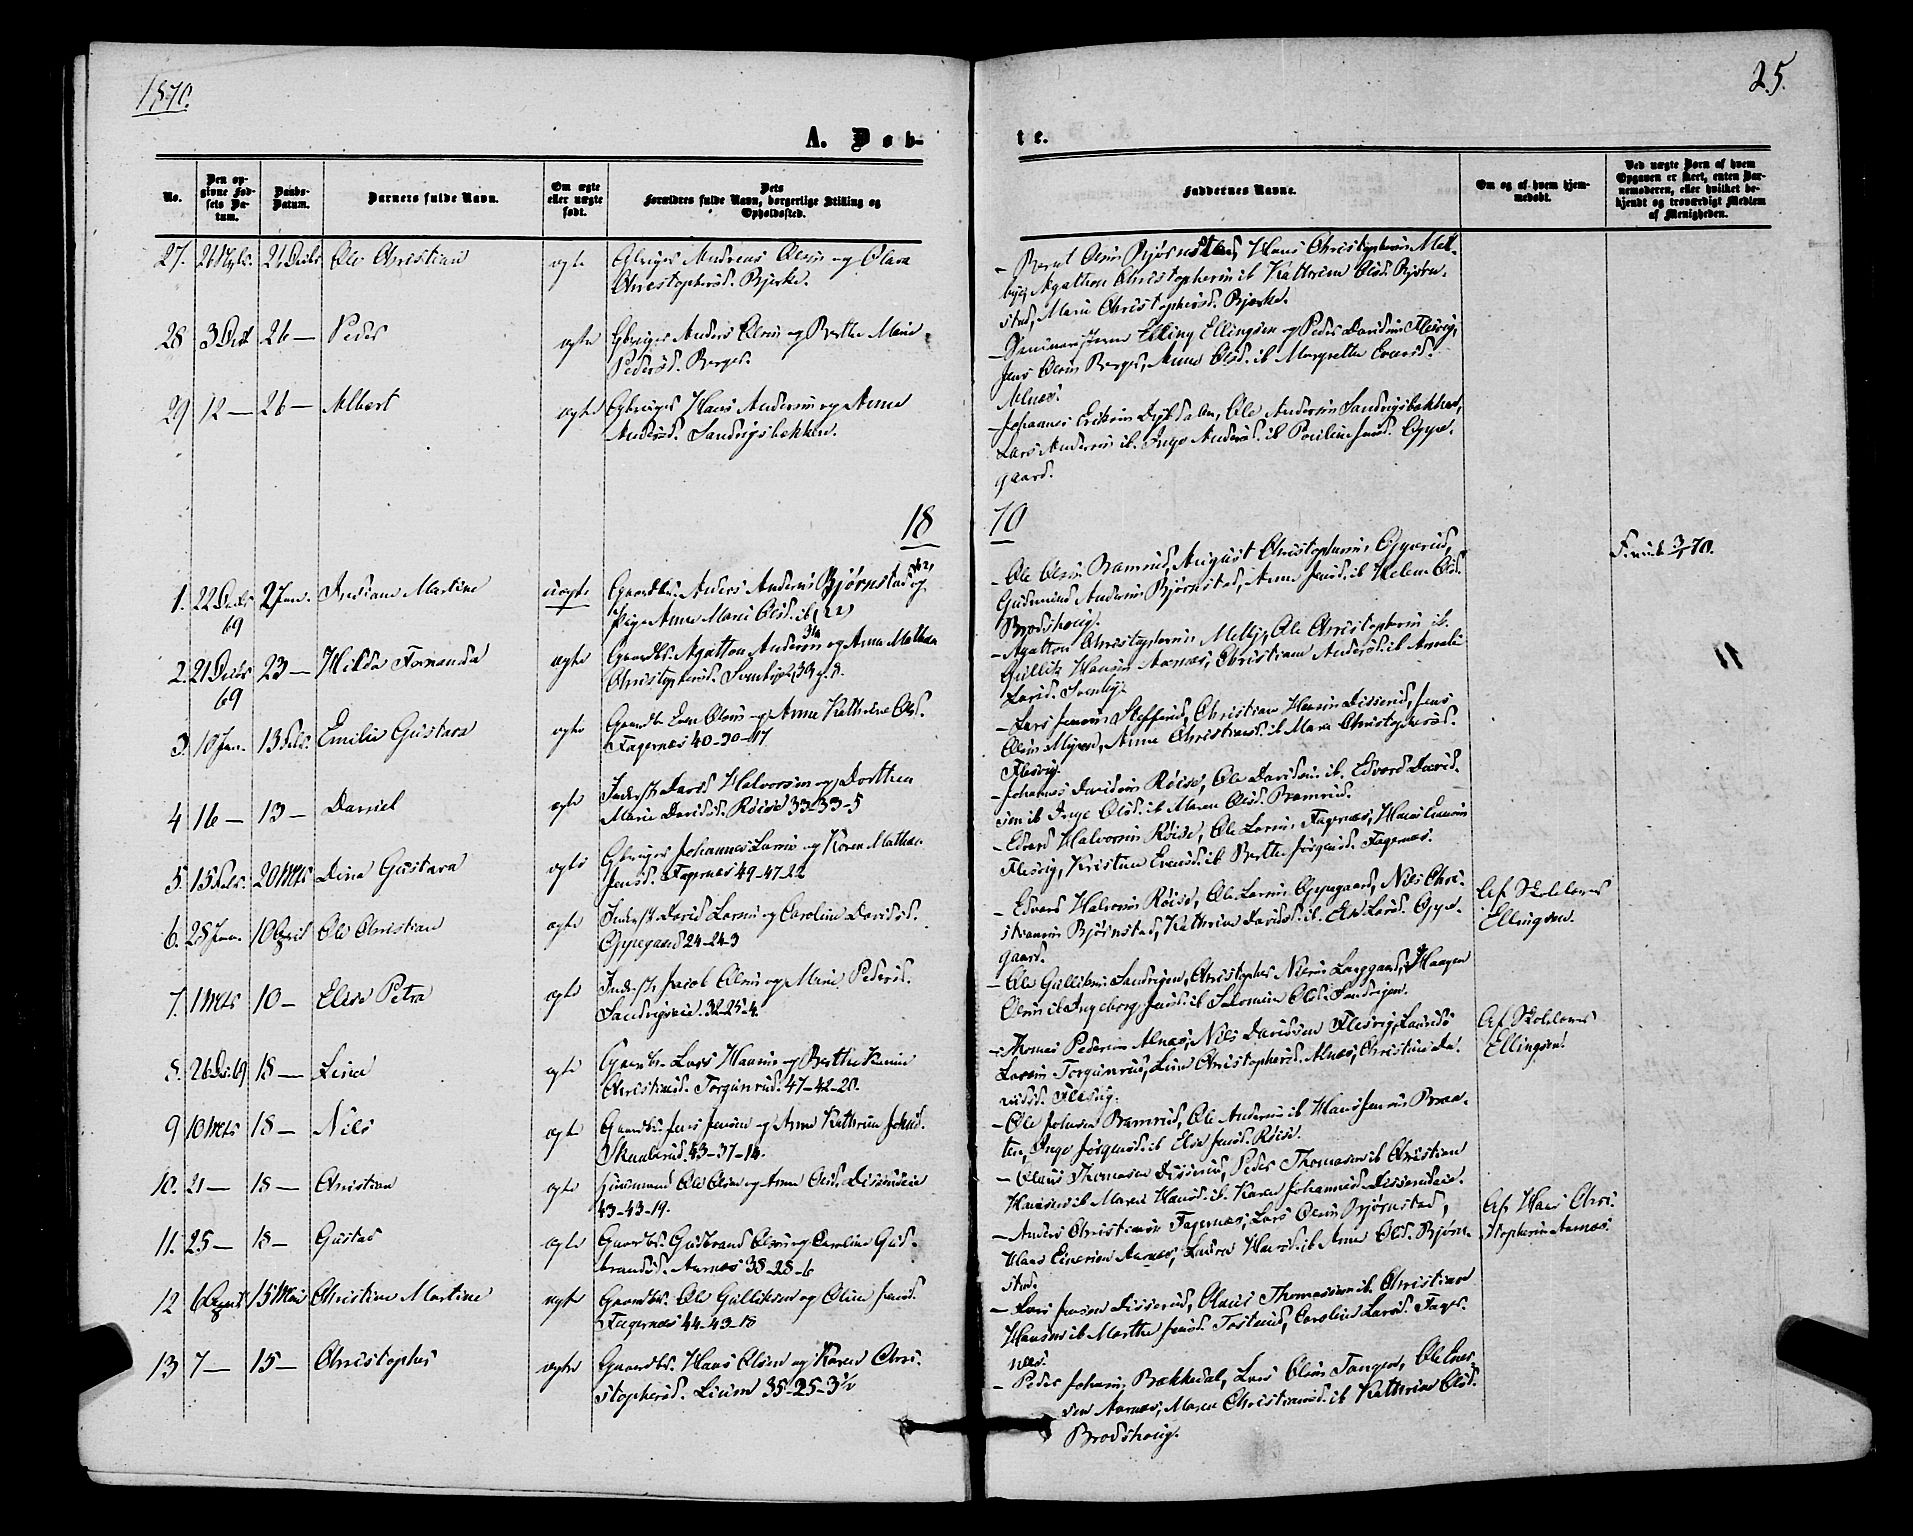 1870.
25.
A. Døb-
te.
No.
Den opgivne Fødsels Datum.
Daabs-Datum.
Barnets fulde Navn.
Om ægte eller uægte født.
Dets Forældres fulde Navn, borgerlige Stilling og Opholdssted.
Faddernes Navne.
Om og af hvem hjemmedøbt.
Ved uægte Børn af hvem Opgaven er skeet, enten Barnemoderen, eller hvilket bekjendt og troværdigt Medlem af Menigheden.
27. 26 21 Ole Christian ægte Andreas Olsen og Olava
Christophersd. Bjerke.
- Bernt Olsen Bjørnstad, Hans Christophersen Mel-
by, Agathon Christophersen ib. Kathrine Olsd. Bjørn-
stad, Marie Christophersd. Bjerke.
28 3 26 — Peder ægte Anders Olsen og Berthe Marie
Pedersd. Berger.
- Elling Ellingsen og Peder Davidsen Flesvig,
Jens Olsen Berger, Anne Olsd. ib. Margrethe Evensd.
Alnæs.
29 12 — 26 — Albert ægte Hans Andersen og Anne
Andersd. Sandvigsbakken.
- Johannes Eriksen Ole Andersen Sandvigsbakken,
Lars Andersen ib. Inge Andersd. ib. Pauline Jensd. Oppe-
gaard.
18 70
1. 22 Decbr 69 2 Jan. Martine uægte Gaardbr. Anders Andersen Bjørnstad og
Pige Anne Marie Olsd. ib. (22)
- Ole Olsen Bamrud, August Christophersen
Gudmund Andersen Bjørnstad, Anne Jensd. ib. Helene Olsd.
Brodshoug.
3/1 70.
2. 21 Decbr 69 23 — Hilda Fernanda ægte Gaardbr. Agathon Andersen og Anna Mathea
Christophersd. Svenby
- Agathon Christophersen Melby, Ole Christophersen ib.
Gullik Hansen Aarnæs, Christiane Andersd. ib. Amalie
Larsd. Svenby.
3. 10 Jan. 13 Febr. Emilie Gustava ægte Gaardbr. Even Olsen og Anne Kathrine Olsd.
Fagernæs 40-30-17
- Lars Jensen Christian Hansen Disserud, Jens
Olsen Anne Christiansd. ib. Maria Christophersd.
Flesvig.
4 16 — 13 — Daniel ægte Inderst David Halvorsen og Dorthea
Marie Davidsd. Röise 33-33-5
- Johannes Davidsen Röise, Ole Davidsen ib. Edvard David-
sen ib. Inge Olsd. ib. Maren Olsd. Bamrud.
5. 15 Febr. 20 Mrts Dina Gustava ægte Johannes Larsen og Karen Mathea
Jensd. Fagernæs 49-47-22
- Edvard Halvorsen Röise, Ole Larsen Fagernæs, Hans Evensen
Flesvig, Kristine Evensd. ib. Berthe Jørgensd. Fagernæs.
6. 28 Jan. 10 April Ole Christian ægte Inderst David Larsen og Caroline Davidsd.
Oppegaard 24-24-3
- Edvard Halvorsen Röise, Ole Larsen Oppegaard, Nils Chri-
stiansen Bjørnstad, Kathrine Davidsd. ib. Else Larsd. Oppe-
gaard.
Af Skolelærer
Ellingsen.
7. 1 Mrts 10 — Elise Petra ægte Inderst. Jacob Olsen og Marie Pedersd.
Sandvigseie. 32-25-4.
- Ole Gulliksen Sandvigen, Christopher Nilsen Haagen
Olsen ib. Ingeborg Jensd. ib. Salomine Olsd. Sandvigen.
8. 26 Dec. 69 18 — Lina ægte Gaardbr. Lars Hansen og Berthe Karine
Christiansd. Torgunrud. 47-42-20.
- Thomas Pedersen Alnæs, Nils Davidsen Flesvig,
Larsen Torgunrud, Lina Christophersd. Alnæs, Christine Da-
vidsd. Flesvig.
Af Skolelærer
Ellingsen
9 10 Mrts 18 — Nils ægte Gaardbr. Jens Jensen og Anne Kathrine Johnsd.
43-37-14.
- Ole Johnsen Bamrud, Ole Andersen ib. Hans Jensen Braa-
ten, Inge Jörgensd. ib. Else Jensd. Röise.
10. 21 — 18 — Christian ægte Huusmand Ole Olsen og Anne Olsd. Disserudeie
43-43-19.
- Olaus Thomasen Disserud, Peder Thomasen ib. Christian
Hansen ib. Maren Hansd. ib. Karen Johannesd. Disserudeie.
11. 25 — 18 — Gustav ægte Gaardbr. Gudbrand Olsen og Caroline Gud-
brandsd. Aarnæs 38-28-6
- Anders Christiansen Fagernæs, Lars Olsen Bjørnstad,
Hans Einersen Aarnæs, Laura Hansd. ib. Anne Olsd. Bjørn-
stad.
Af Hans Chri-
stophersen Aarnæs.
12 6 April 15 Mai Christine Martine ægte Gaardbr. Ole Gulliksen og Oline Jensd.
Fagernæs 44-43-18
- Lars Jensen Disserud, Olaus Thomassen ib. Christian
Hansen ib. Marthe Jensd. Caroline Larsd. Fager-
næs.
13 7 — 15 — Christopher ægte Gaardbr. Hans Olsen og Karen Chri-
stophersd. Lium 35-25-3½
- Peder Johnsen Bækkedal, Lars Olsen Tangen, Ole Ener-
sen Aarnæs, Maren Christiansd. ib. Kathrine Olsd.
Brodshoug.